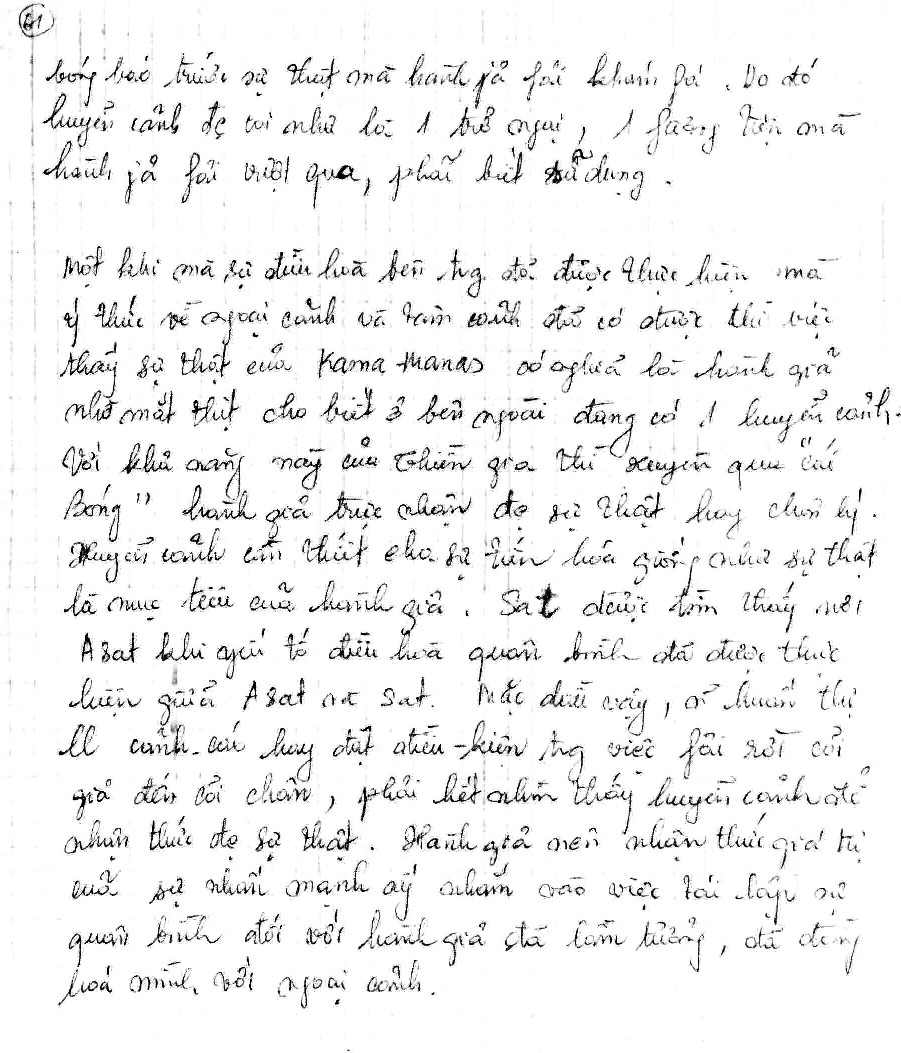 61
bóng báo trước sự thật mà hành jả fải khám fá. Do đó
huyển cảnh đc coi như là 1 trở ngại, 1 fương tiện mà
hành jả fải vượt qua, phải biết sử dụng.
Một khi mà sự điều hoà bên tg. đã được thực hiện mà
ý thức về ngoại cảnh và tâm cảnh đã có được thì việc
thấy sự thật của Kama-Manas có nghiã là hành giả
nhờ mắt thịt cho biết ở bên ngoài đang có 1 huyển cảnh.
Với khả năng này của thiền gia thì xuyên qua "cái
Bóng" hành giả trực nhận đc sự thật hay chơn lý.
Huyển cảnh cần thiết cho sự tiến hóa giống như sự thật
là mục tiêu của hành giả. Sat được tìm thấy nơi
Asat khi yếu tố điều hoà quân bình đã được thực
hiện giữa Asat và Sat. Mặc dầu vậy, ở huấn thị
11 cảnh cáo hay đặt điều-kiện tg việc fải rời cỏi
giả đến cỏi chân, phải hết nhìn thấy huyển cảnh để
nhận thức đc sự thật. Hành giả nên nhận thức giá trị
của sự nhấn mạnh ấy nhắm vào việc tái lập sự
quân bình đối với hành giả đã lầm tưởng, đã đồng
hoá mình với ngoại cảnh.